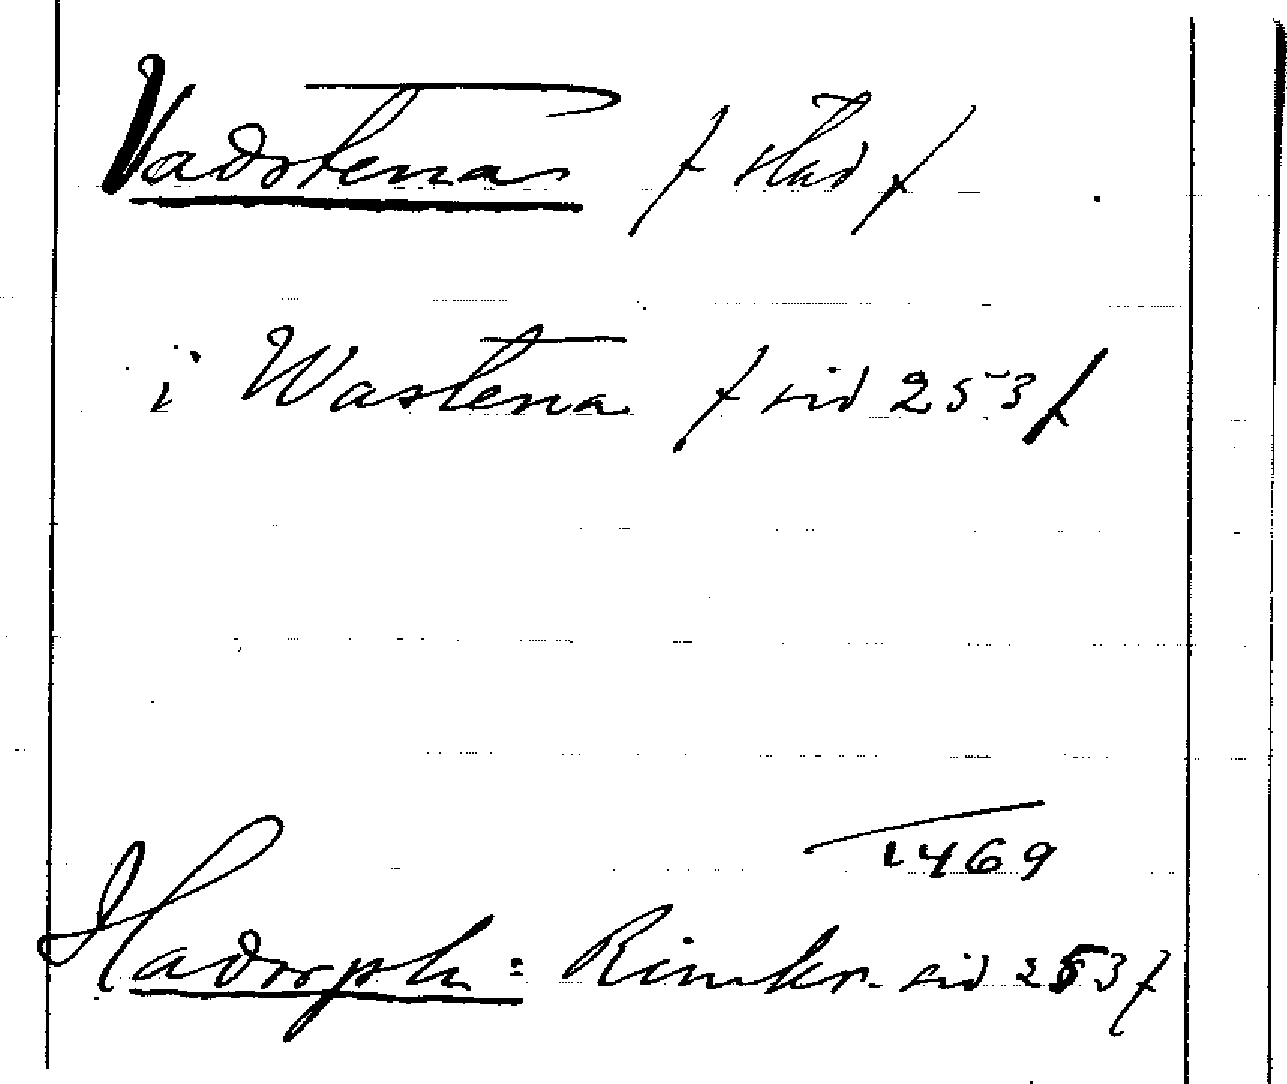 Vadstena / stad /
i Wastena / sid 253 /
1469
Hadorph: Rimkr. sid 253 /